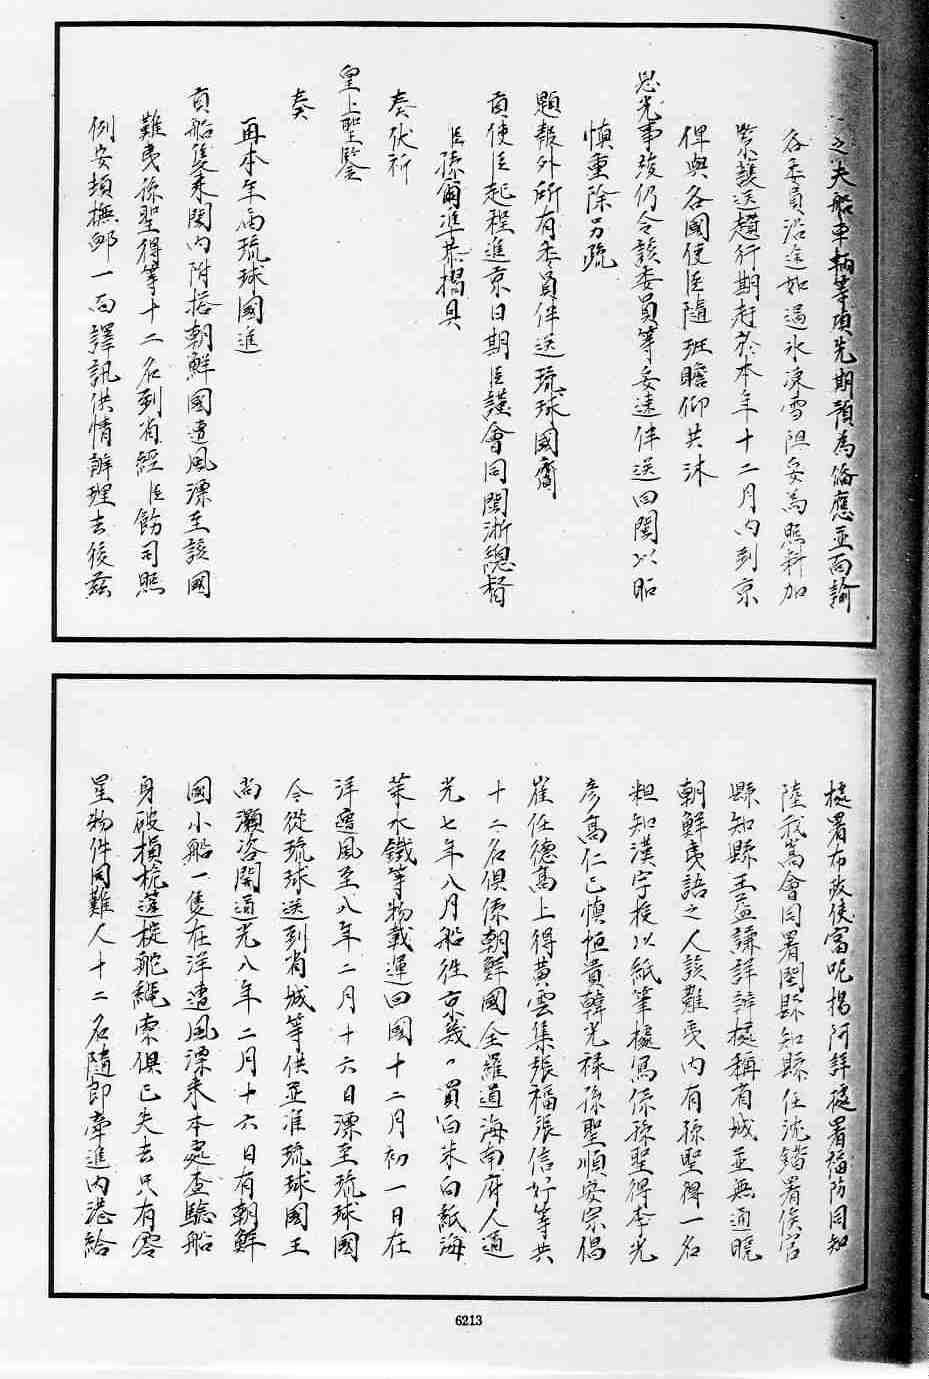 之夫船車輛等項先期預為俻應並面諭
各委員沿途如遇氷凍雪阻妥為照料加
緊護送趲行期赶於本年十二月內到京
俾與各國使臣隨班瞻仰共沐
恩光事竣仍令該委員等妥速伴送回閩以昭
慎重除另疏
題報外所有委員伴送琉球國賫
貢使臣起程進京日期臣謹會同閩浙總督
臣孫爾準恭摺具
奏伏祈
皇上聖鑒
奏
再本年兩琉球國進
貢船隻來閩內附搭朝鮮國遭風漂至該國
難夷孫聖得等十二名到省經臣飭司照
例安頓撫卹一面譯訊供情辦理去後茲
據署布政使富呢揚阿詳據署福防同知
陸我嵩會同署閩縣知縣任沈鍇署侯官
縣知縣王益謙詳辦據稱省城並無通曉
朝鮮夷語之人該難夷內有孫聖得一名
粗知漢字授以紙筆據寫係孫聖得李光
彥高仁己慎恒貴韓光祿孫聖順安宗侶
崔任德高上得黃雲集張福張信好等共
十二名俱係朝鮮國全羅道海南府人道
光七年八月船徃京畿買白米白紙海
菜水鐵等物載運回國十二月初一日在
洋遭風至八年二月十六日漂至琉球國
令從琉球送到省城等供並准琉球國王
尚灝咨開道光八年二月十六日有朝鮮
國小船一隻在洋遭風漂來本處查驗船
身破損桅蓬椗舵繩索俱已失去只有零
星物件同難人十二名隨即牽進內港給
6213